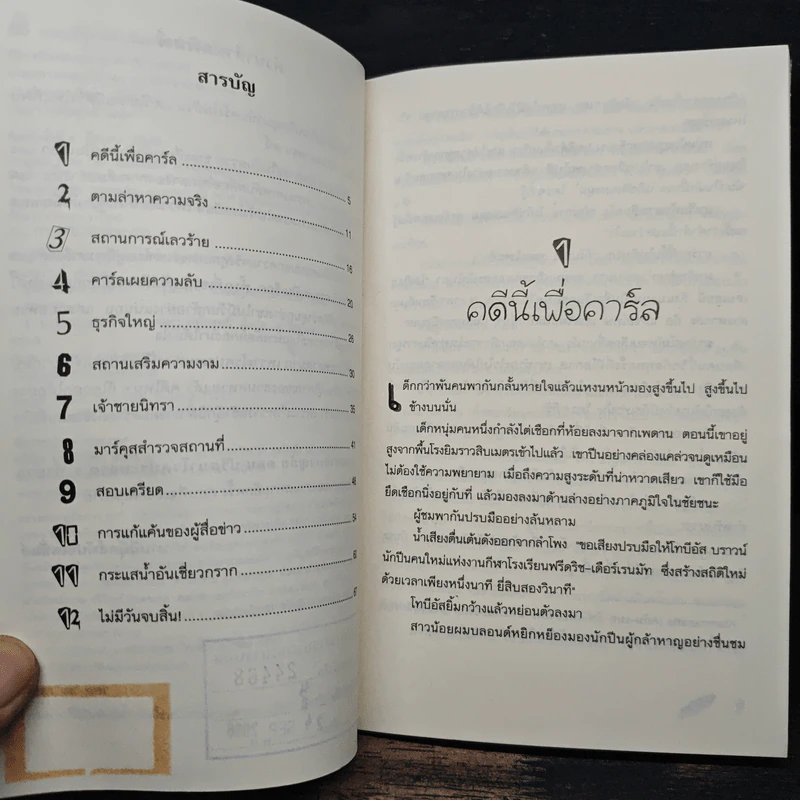 สารบัญ
1 คดีนี้เพื่อคาร์ล 5
2 ตามล่าหาความจริง 11
3 สถานการณ์เลวร้าย 16
4 คาร์ลเผยความลับ 20
5 ธุรกิจใหญ่ 26
6 สถานเสริมความงาม 30
7 เจ้าชายนิทรา 35
8 มาร์คุสสำรวจสถานที่ 41
9 สอบเครียด 48
10 การแก้แค้นของผู้สื่อข่าว 54
11 กระแสน้ำอันเชี่ยวกราก 60
12 ไม่มีวันจบสิ้น! 67
24468
1
คดีนี้เพื่อคาร์ล
เด็กกว่าพันคนพากันกลั้นหายใจแล้วแหงนหน้ามองสูงขึ้นไป สูงขึ้นไป
ข้างบนนั่น
เด็กหนุ่มคนหนึ่งกำลังไต่เชือกที่ห้อยลงมาจากเพดาน ตอนนี้เขาอยู่
สูงจากพื้นโรงยิมราวสิบเมตรเข้าไปแล้ว เขาปีนอย่างคล่องแคล่วจนดูเหมือน
ไม่ต้องใช้ความพยายาม เมื่อถึงความสูงระดับที่น่าหวาดเสียว เขาก็ใช้มือ
ยึดเชือกนิ่งอยู่กับที่ แล้วมองลงมาด้านล่างอย่างภาคภูมิใจในชัยชนะ
ผู้ชมพากันปรบมืออย่างล้นหลาม
น้ำเสียงตื่นเต้นดังออกจากลำโพง "ขอเสียงปรบมือให้โทบีอัส บราวน์
นักปีนคนใหม่แห่งงานกีฬาโรงเรียนฟรีดริช-เดือร์เรนมัท ซึ่งสร้างสถิติใหม่
ด้วยเวลาเพียงหนึ่งนาที ยี่สิบสองวินาที"
โทบีอัสยิ้มกว้างแล้วหย่อนตัวลงมา
สาวน้อยผมบลอนด์หยิกหย็องมองนักปีนผู้กล้าหาญอย่างชื่นชม